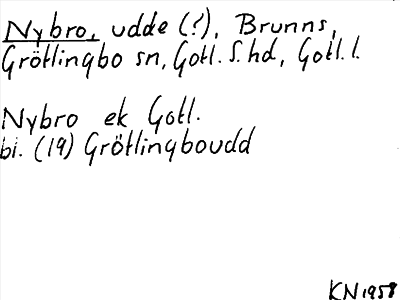 Nybro, udde (?), Brunns,
Grötlingbo sn, Gotl. S. hd, Gotl. l.
Nybro ek Gotl.
bi. (19) Grötlingboudd
KN 1958